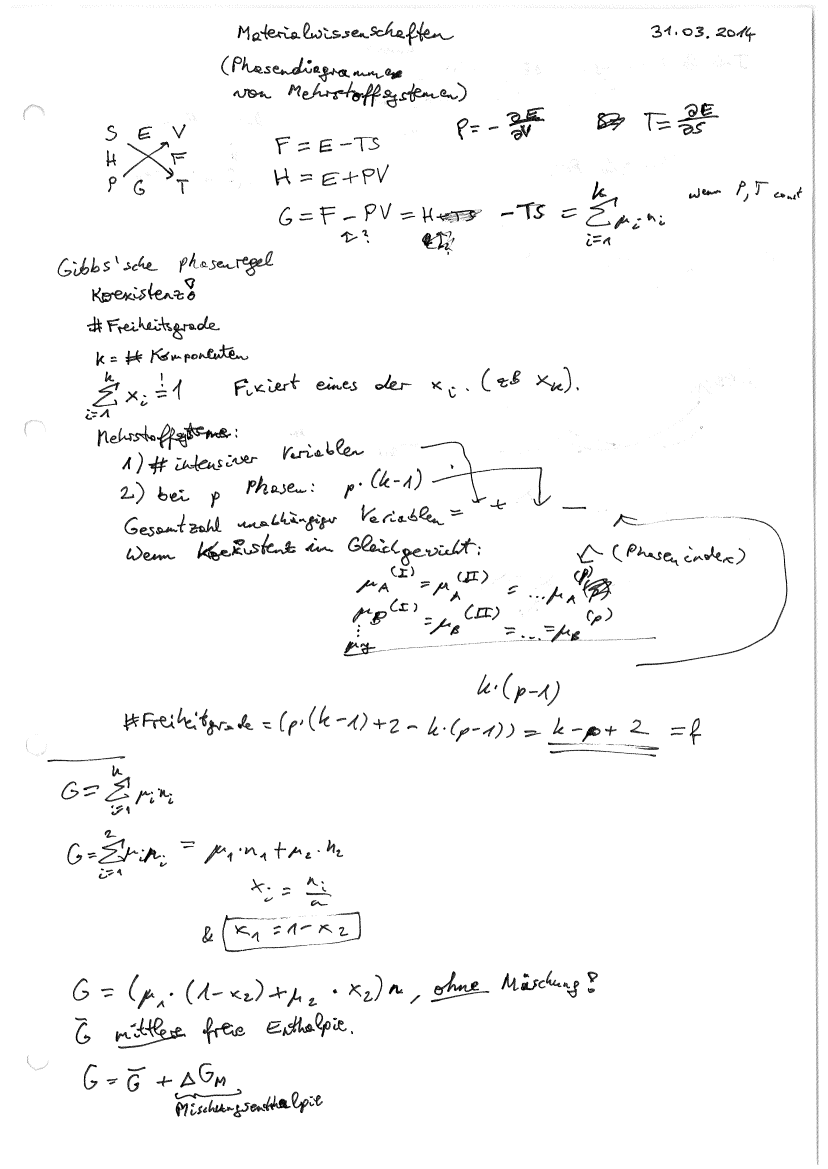 Materialwissenschaften 31.03.2014
(Phasendiagramme
von Mehrstoffsystemen)
S E V
H F
P G T
P = - ∂E/∂V T = ∂E/∂S
F = E - TS
H = E + PV
G = F - PV = H - TS = Σ_{i=1}^{k} μ_i n_i wenn P, T const
↑?
Gibbs'sche Phasenregel
Koexistenz!
# Freiheitsgrade
k = # Komponenten
Σ_{i=1}^{k} x_i =! 1 Fixiert eines der x_i. (zB x_k).
Mehrstoffsysteme:
1) # intensiver Variablen
2) bei p Phasen: p·(k-1)
Gesamtzahl unabhängiger Variablen = + -
Wenn Koexistent im Gleichgewicht: (Phasenindex)
μ_A^(I) = μ_A^(II) = ... μ_A^(p)
μ_B^(I) = μ_B^(II) = ... = μ_B^(p)
k·(p-1)
# Freiheitgrade = (p·(k-1) + 2 - k·(p-1)) = k - p + 2 = f
G = Σ_{i=1}^{k} μ_i n_i
G = Σ_{i=1}^{2} μ_i n_i = μ_1·n_1 + μ_2·n_2
x_i = n_i/n
& x_1 = 1 - x_2
G = (μ_1·(1-x_2) + μ_2·x_2) n, ohne Mischung!
G̅ mittlere freie Enthalpie.
G = G̅ + ΔG_M
Mischungsenthalpie